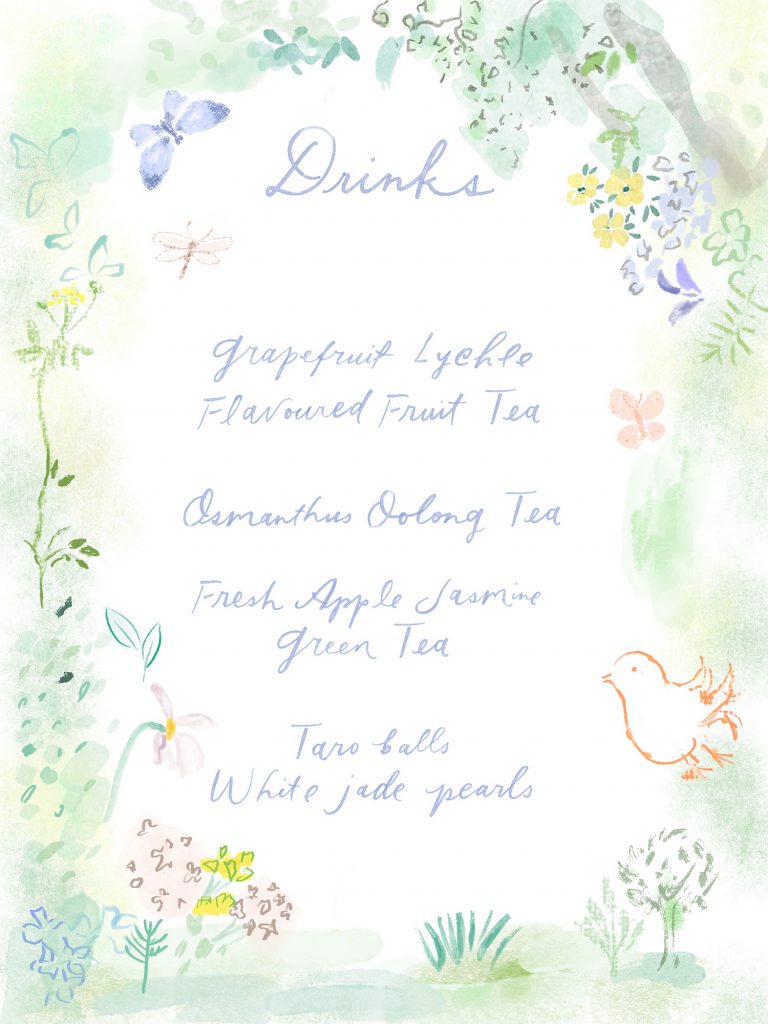 Drinks
Grapefruit Lychee
Flavoured Fruit Tea
Osmanthus Oolong Tea
Fresh Apple Jasmine
Green Tea
Taro balls
White jade pearls